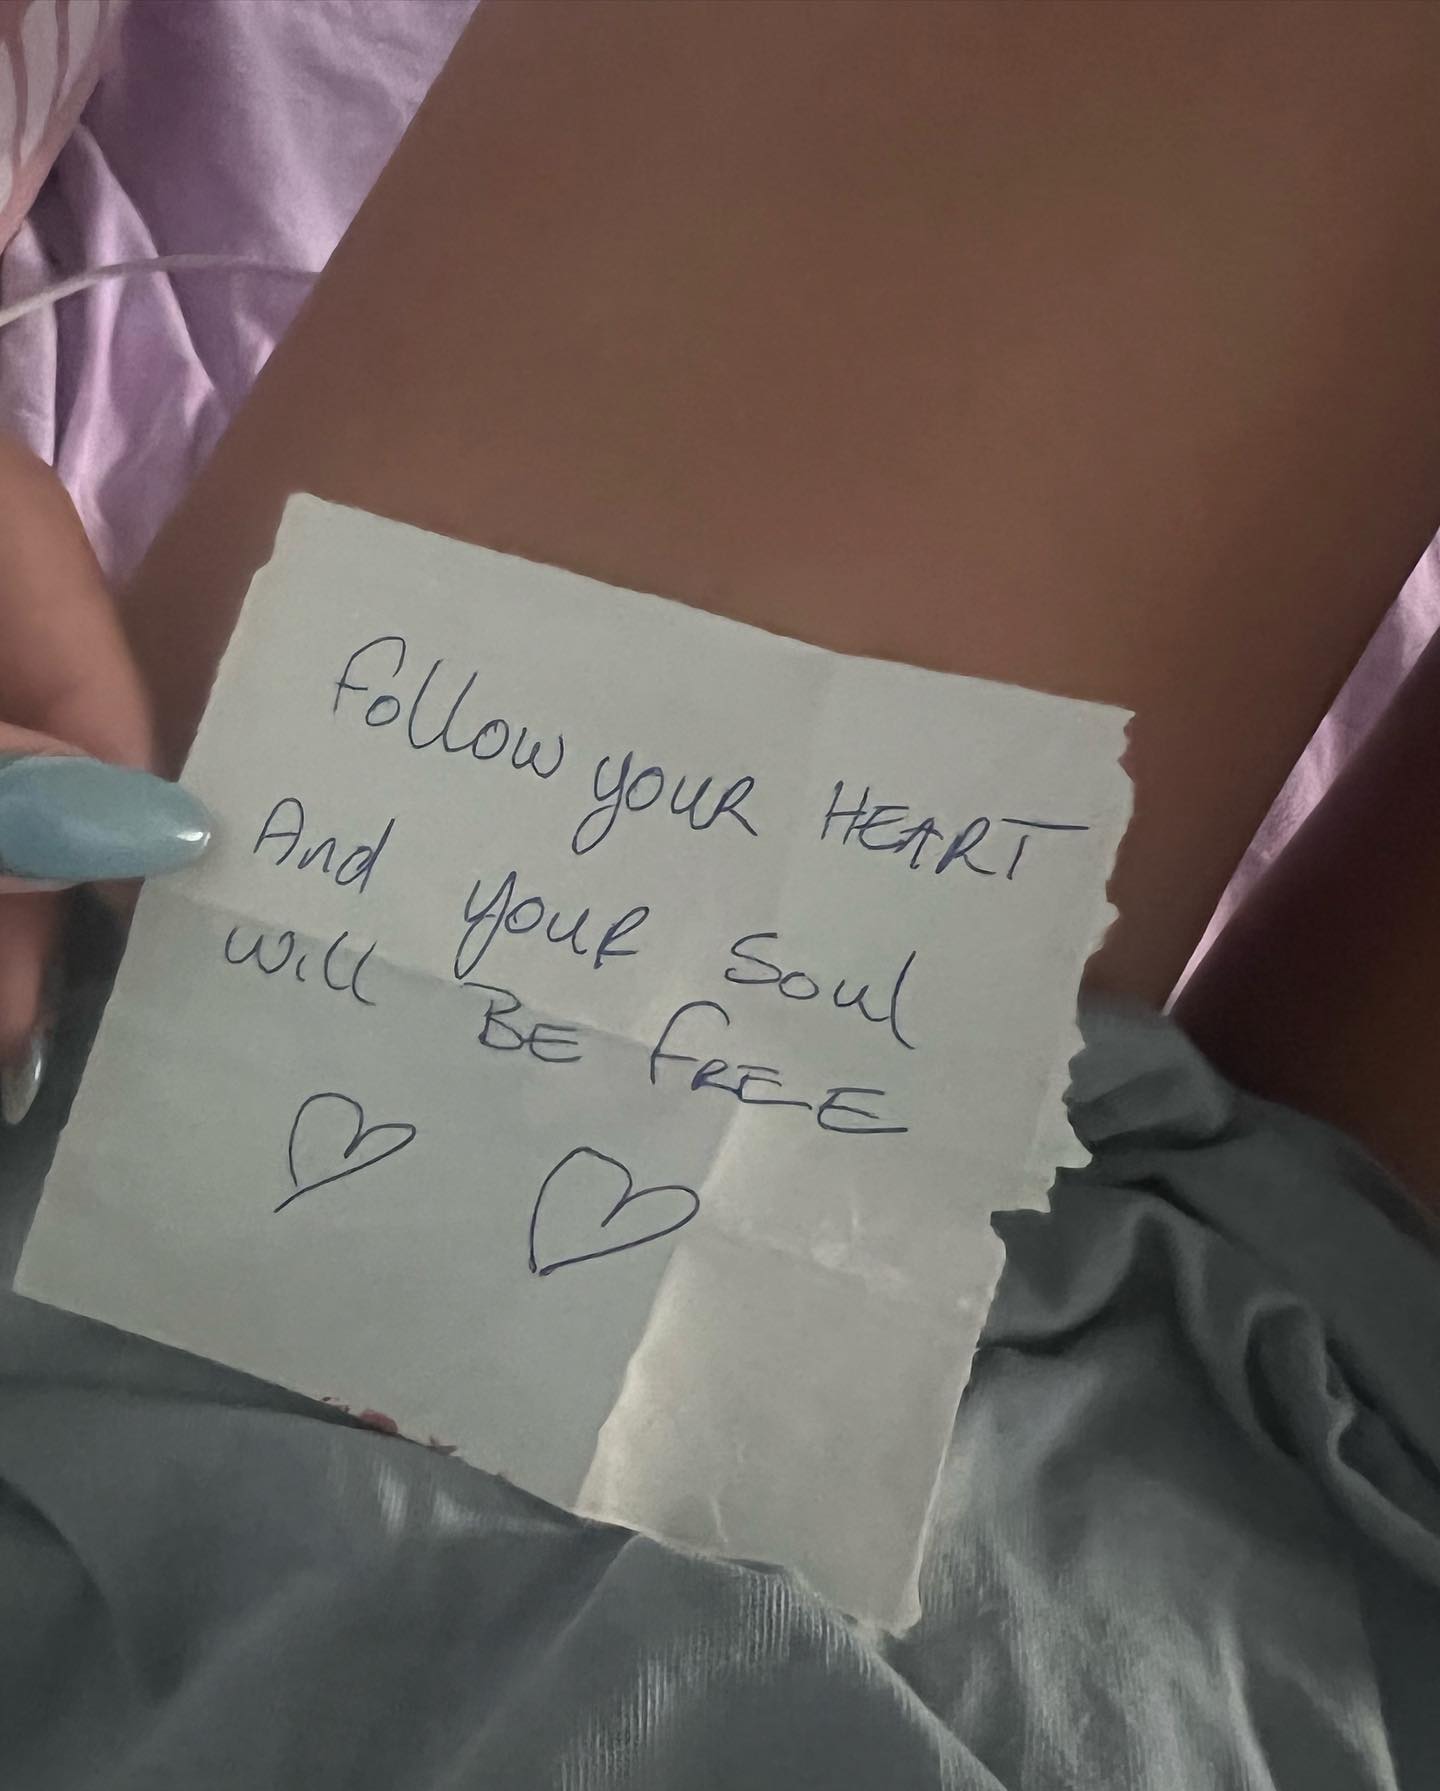 Follow your HEART
And your soul
will BE FREE